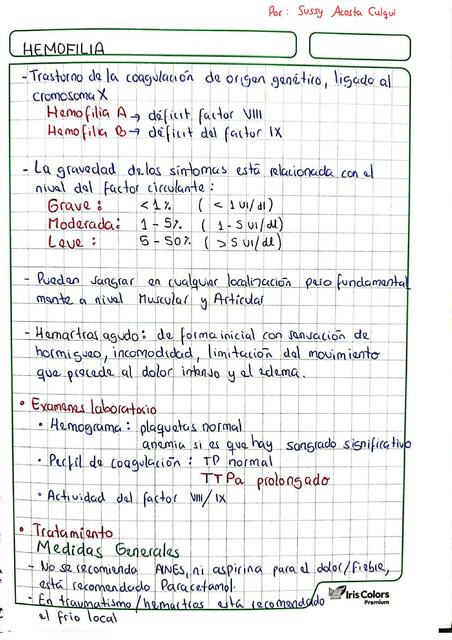 Por: Sussy Acosta Culqui
HEMOFILIA
- Trastorno de la coagulación de origen genético, ligado al
cromosoma X
Hemofilia A → déficit factor VIII
Hemofilia B → déficit del factor IX
- La gravedad de los síntomas está relacionada con el
nivel del factor circulante:
Grave: <1% (<1 UI/dl)
Moderada: 1-5% (1-5 UI/dl)
Leve: 5-50% (>5 UI/dl)
- Pueden sangrar en cualquier localización pero fundamental
mente a nivel Muscular y Articular
- Hemartros agudo: de forma inicial con sensación de
hormigueo, incomodidad, limitación del movimiento
que precede al dolor intenso y el edema.
• Examenes laboratorio
• Hemograma: plaquetas normal
anemia si es que hay sangrado significativo
• Perfil de coagulación: TP normal
TTPa prolongado
• Actividad del factor VIII/IX
• Tratamiento
Medidas Generales
- No se recomienda AINES, ni aspirina para el dolor/fiebre,
está recomendado Paracetamol.
- En traumatismo/hemartros está recomendado
el frío local
Iris Colors
Premium